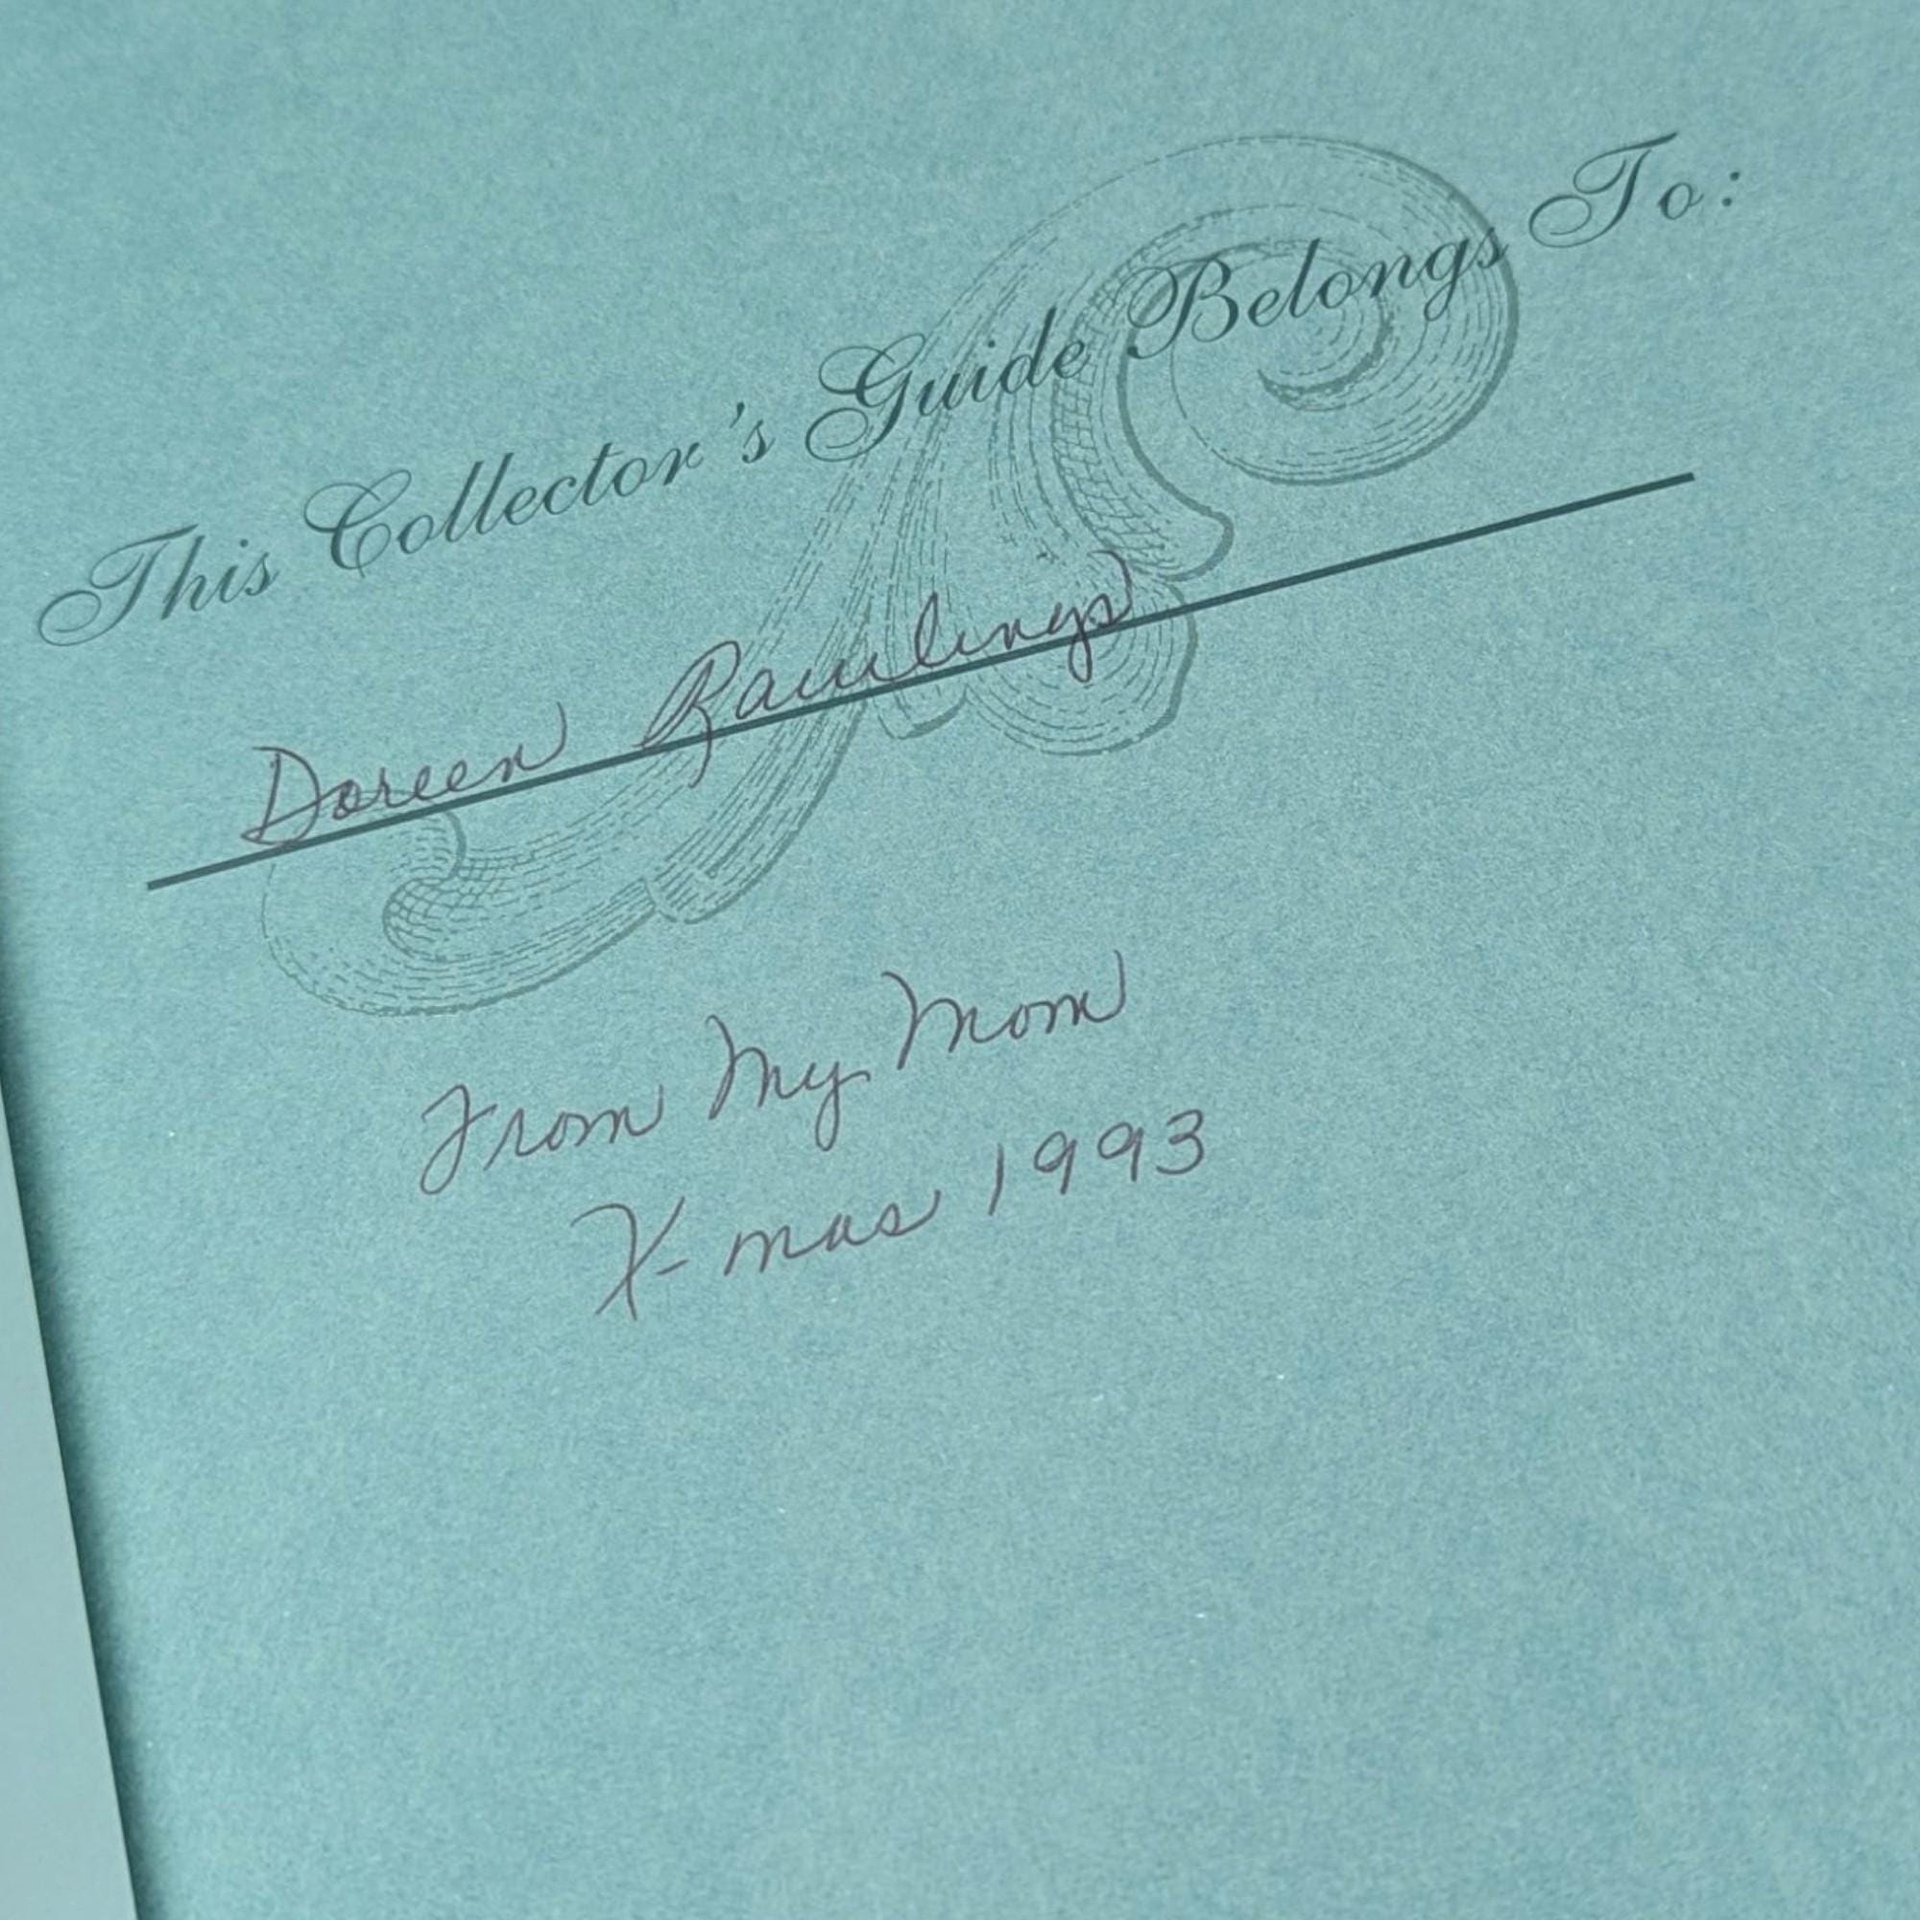 This Collector's Guide Belongs To:
Doreen Rawlings
From My Mom
X-mas 1993